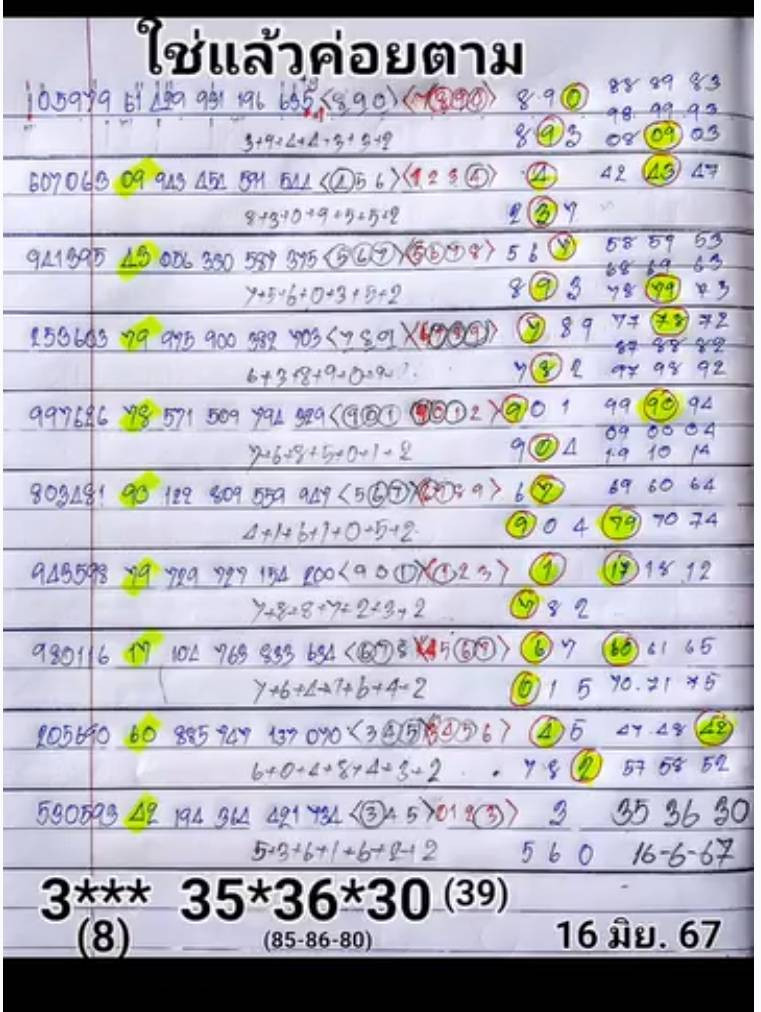 ใช่แล้วค่อยตาม
105979 61 429 931 196 635 <890> <7890> 8 9 0 88 89 83
98 99 93
3+9+4+4+3+3+2 8 9 3 08 09 03
607063 09 943 454 591 544 <456> <1234> 4 42 43 47
8+3+0+9+5+5+2 2 3 7
941395 43 056 330 587 375 <567> <5678> 5 6 7 58 59 53
68 69 63
7+5+6+0+3+5+2 8 9 3 78 79 73
253603 79 975 900 382 703 <789> 7 8 9 77 78 72
87 88 82
7 8 2 97 98 92
997626 78 571 509 794 329 <901 9012> 9 0 1 99 90 94
09 00 04
7+6+8+5+0+1+2 9 0 4 19 10 14
803481 90 122 809 559 947 <567> 6 7 69 60 64
4+1+6+1+0+5+2 9 0 4 79 70 74
943598 79 729 727 154 200 <901> <0123> 1 17 18 12
7+8+8+7+2+3+2 7 8 2
980116 17 104 763 833 634 <678> <4567> 6 7 60 61 65
7+6+4+7+6+4+2 0 1 5 70 71 75
205690 60 885 747 137 070 <345> <3456> 4 5 47 48 42
6+0+4+8+4+3+2 7 8 2 57 58 52
530593 42 194 364 421 734 <345> 0123> 3 35 36 30
5+3+6+1+6+2+2 5 6 0 16-6-67
3*** 35*36*30 (39)
(8) (85-86-80) 16 มิย. 67